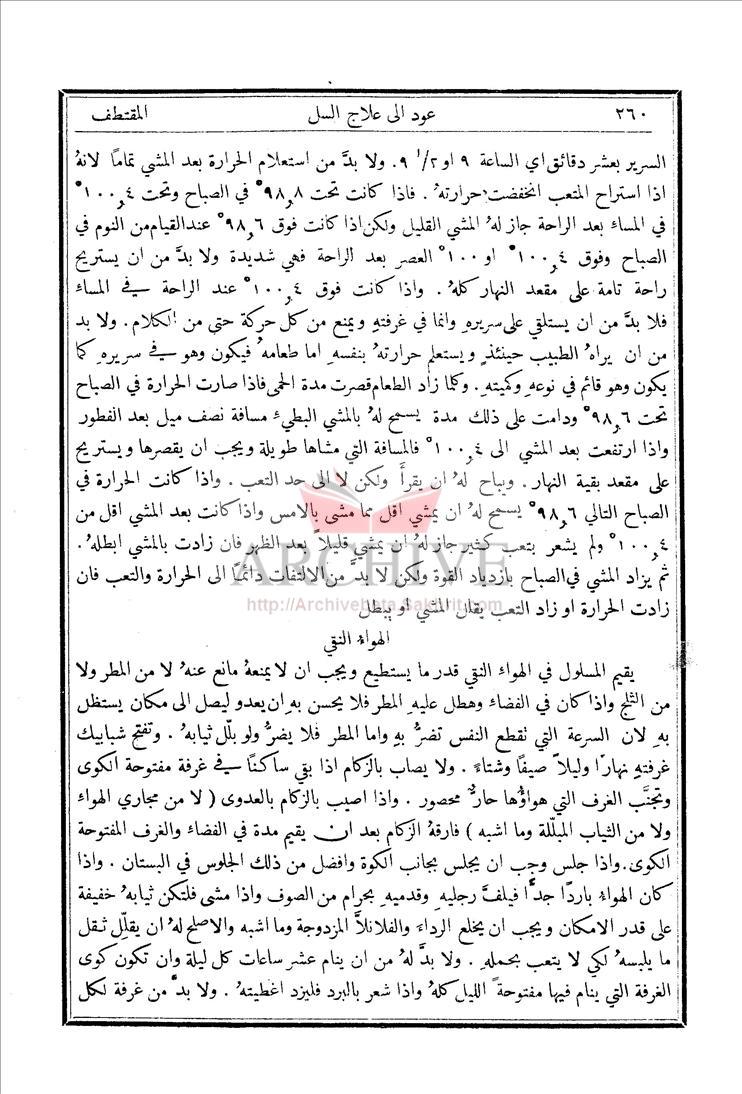 ٢٦٠ عود الى علاج السل المقتطف
السرير بعشر دقائق اي الساعة ٩ او ١/٢ ٩. ولا بدَّ من استعلام الحرارة بعد المشي تمامًا لانهُ
اذا استراح المتعب انخفضت حرارتهُ . فاذا كانت تحت ٩٨٫٨° في الصباح وتحت ١٠٠٫٤°
في المساء بعد الراحة جاز لهُ المشي القليل ولكن اذا كانت فوق ٩٨٫٦° عند القيام من النوم في
الصباح وفوق ١٠٠٫٤° او ١٠٠° العصر بعد الراحة فهي شديدة ولا بدَّ من ان يستريح
راحة تامة على مقعد النهار كلهُ . واذا كانت فوق ١٠٠٫٤° عند الراحة في المساء
فلا بدَّ من ان يستلقي على سريرهِ وانما في غرفتهِ ويمنع من كل حركة حتى من الكلام . ولا بد
من ان يراهُ الطبيب حينئذٍ ويستعلم حرارتهُ بنفسهِ اما طعامهُ فيكون وهو في سريره كما
يكون وهو قائم في نوعهِ وكميتهِ . وكلما زاد الطعام قصرت مدة الحمى فاذا صارت الحرارة في الصباح
تحت ٩٨٫٦° ودامت على ذلك مدة يسمح لهُ بالمشي البطيء مسافة نصف ميل بعد الفطور
واذا ارتفعت بعد المشي الى ١٠٠٫٤° فالمسافة التي مشاها طويلة ويجب ان يقصرها ويستريح
على مقعد بقية النهار . ويباح لهُ ان يقرأَ ولكن لا الى حد التعب . واذا كانت الحرارة في
الصباح التالي ٩٨٫٦° يسمح لهُ ان يمشي اقل مما مشى بالامس واذا كانت بعد المشي اقل من
١٠٠٫٤° ولم يشعر بتعب كثير جاز لهُ ان يمشي قليلاً بعد الظهر فان زادت بالمشي ابطلهُ .
ثم يزاد المشي في الصباح بازدياد القوة ولكن لا بدَّ من الالتفات دائمًا الى الحرارة والتعب فان
زادت الحرارة او زاد التعب يقلل المشي او يبطل
ARCHIVE
http://Archivebeta.Sakhrit.com
الهواء النقي
يقيم المسلول في الهواء النقي قدر ما يستطيع ويجب ان لا يمنعهُ مانع عنهُ لا من المطر ولا
من الثلج واذا كان في الفضاء وهطل عليهِ المطر فلا يحسن بهِ ان يعدو ليصل الى مكان يستظل
بهِ لان السرعة التي تقطع النفس تضرُّ بهِ واما المطر فلا يضرُّ ولو بلّل ثيابهُ . وتفتح شبابيك
غرفتهِ نهارًا وليلاً صيفًا وشتاءً . ولا يصاب بالزكام اذا بقي ساكنًا في غرفة مفتوحة الكوى
وتجنَّب الغرف التي هواؤها حارٌّ محصور . واذا اصيب بالزكام بالعدوى ( لا من مجاري الهواء
ولا من الثياب المبلّلة وما اشبه ) فارقهُ الزكام بعد ان يقيم مدة في الفضاء والغرف المفتوحة
الكوى. واذا جلس وجب ان يجلس بجانب الكوة وافضل من ذلك الجلوس في البستان . واذا
كان الهواء باردًا جدًّا فيلفَّ رجليهِ وقدميهِ بحرام من الصوف واذا مشى فلتكن ثيابهُ خفيفة
على قدر الامكان ويجب ان يخلع الرداء والفلانلاَّ المزدوجة وما اشبه والاصلح لهُ ان يقلّل ثقل
ما يلبسهُ لكي لا يتعب بحملهِ . ولا بدَّ لهُ من ان ينام عشر ساعات كل ليلة وان تكون كوى
الغرفة التي ينام فيها مفتوحة الليل كلهُ واذا شعر بالبرد فليزد اغطيتهُ . ولا بدَّ من غرفة لكل